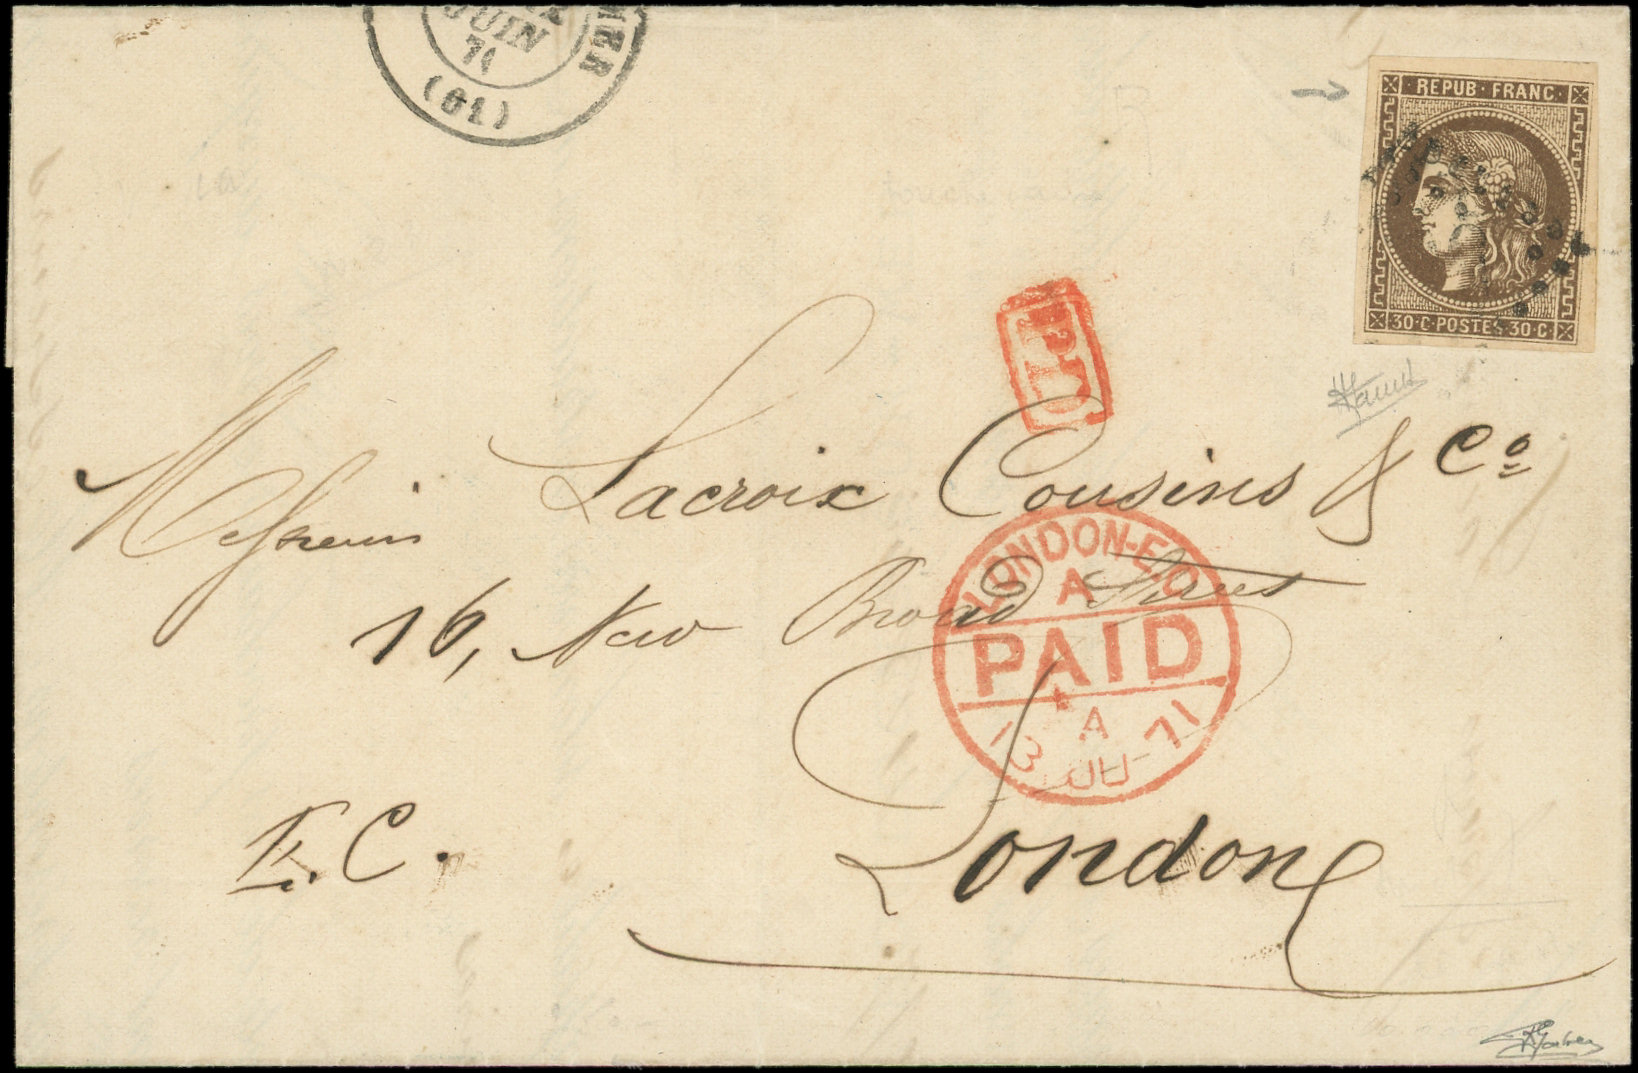 JUIN
71
(61)
REPUB·FRANC·
30·C·POSTES·30·C
P.D.
Messieurs Lacroix Cousins & Cº
16, New Broad Street
LONDON-E.C
A
PAID
A
13 JU 71
E.C.
London